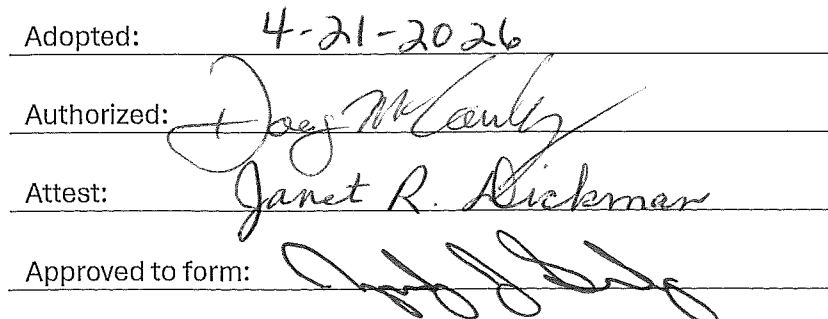 Adopted: 4-21-2026
Authorized: Doug McCauley
Attest: Janet R. Dickman
Approved to form: